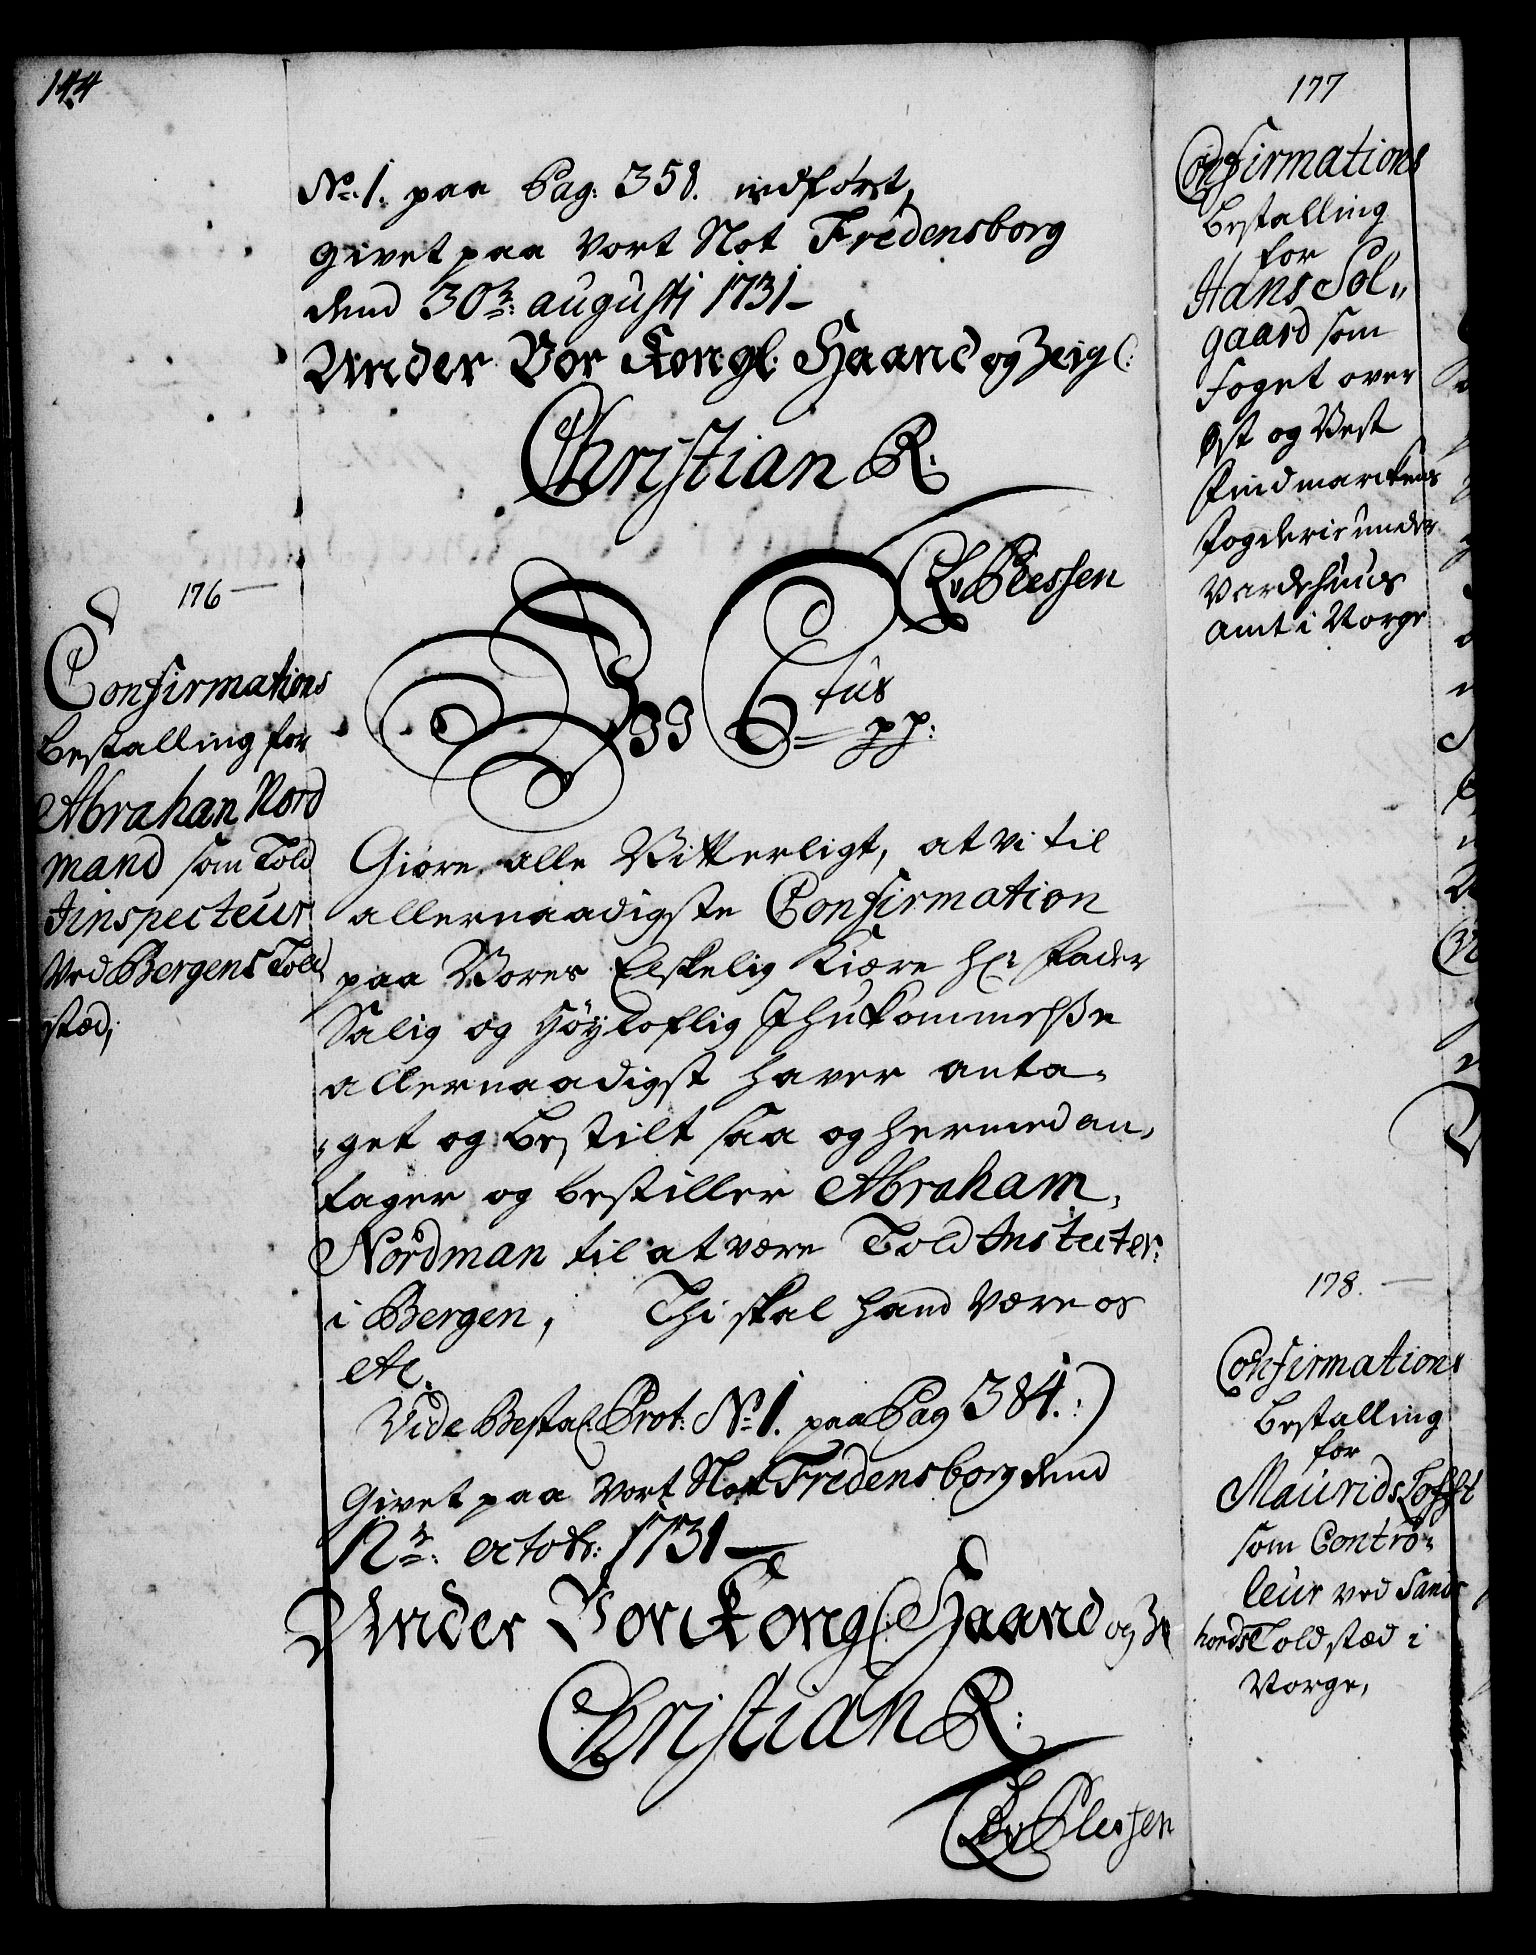 144
No: 1. paa Pag: 358. indført,
Givet paa Vort Slot Fredensborg
dend 30te: augusti 1731
Under Vor Kongl: Haand og Zeigl:
Christian R:
C v Plessen
176
Confirmations
Bestalling for
Abrahan Nord
mand som Told
Jinspecteur
Ved Bergens Told
stæd,
Vii C
tus
pp:
Giøre alle Vitterligt, at Vi til
allernaadigste Confirmation
paa Vores Elskelig Kiære Hr Fader
Salig og Høyloflig Ihukommelse
allernaadigst haver anta-
get og bestilt saa og hermed an-
tager og bestiller Abraham
Nordman til at være Told Insteuter:
i Bergen, Thi skal hand Være os
etc.
Vide Bestal: Prot: No 1. paa Pag 384.:)
Givet paa Vort Slot Fredensborg dend
12te: octobr: 1731
Under Vor Kongl: Haand og Ze
Christian R:
C v Plessen
177
Confirmations
Bestalling
for
Hans Sol„
gaard som
Foget over
Øst og Vest
Findmarckens
Fogderie under
Vardehuus
Amt i Norge
178.
Confirmations
Bestalling
for
Maurids Tofft
som Contro-
leur ved Sands
hords Told stæd i
Norge,